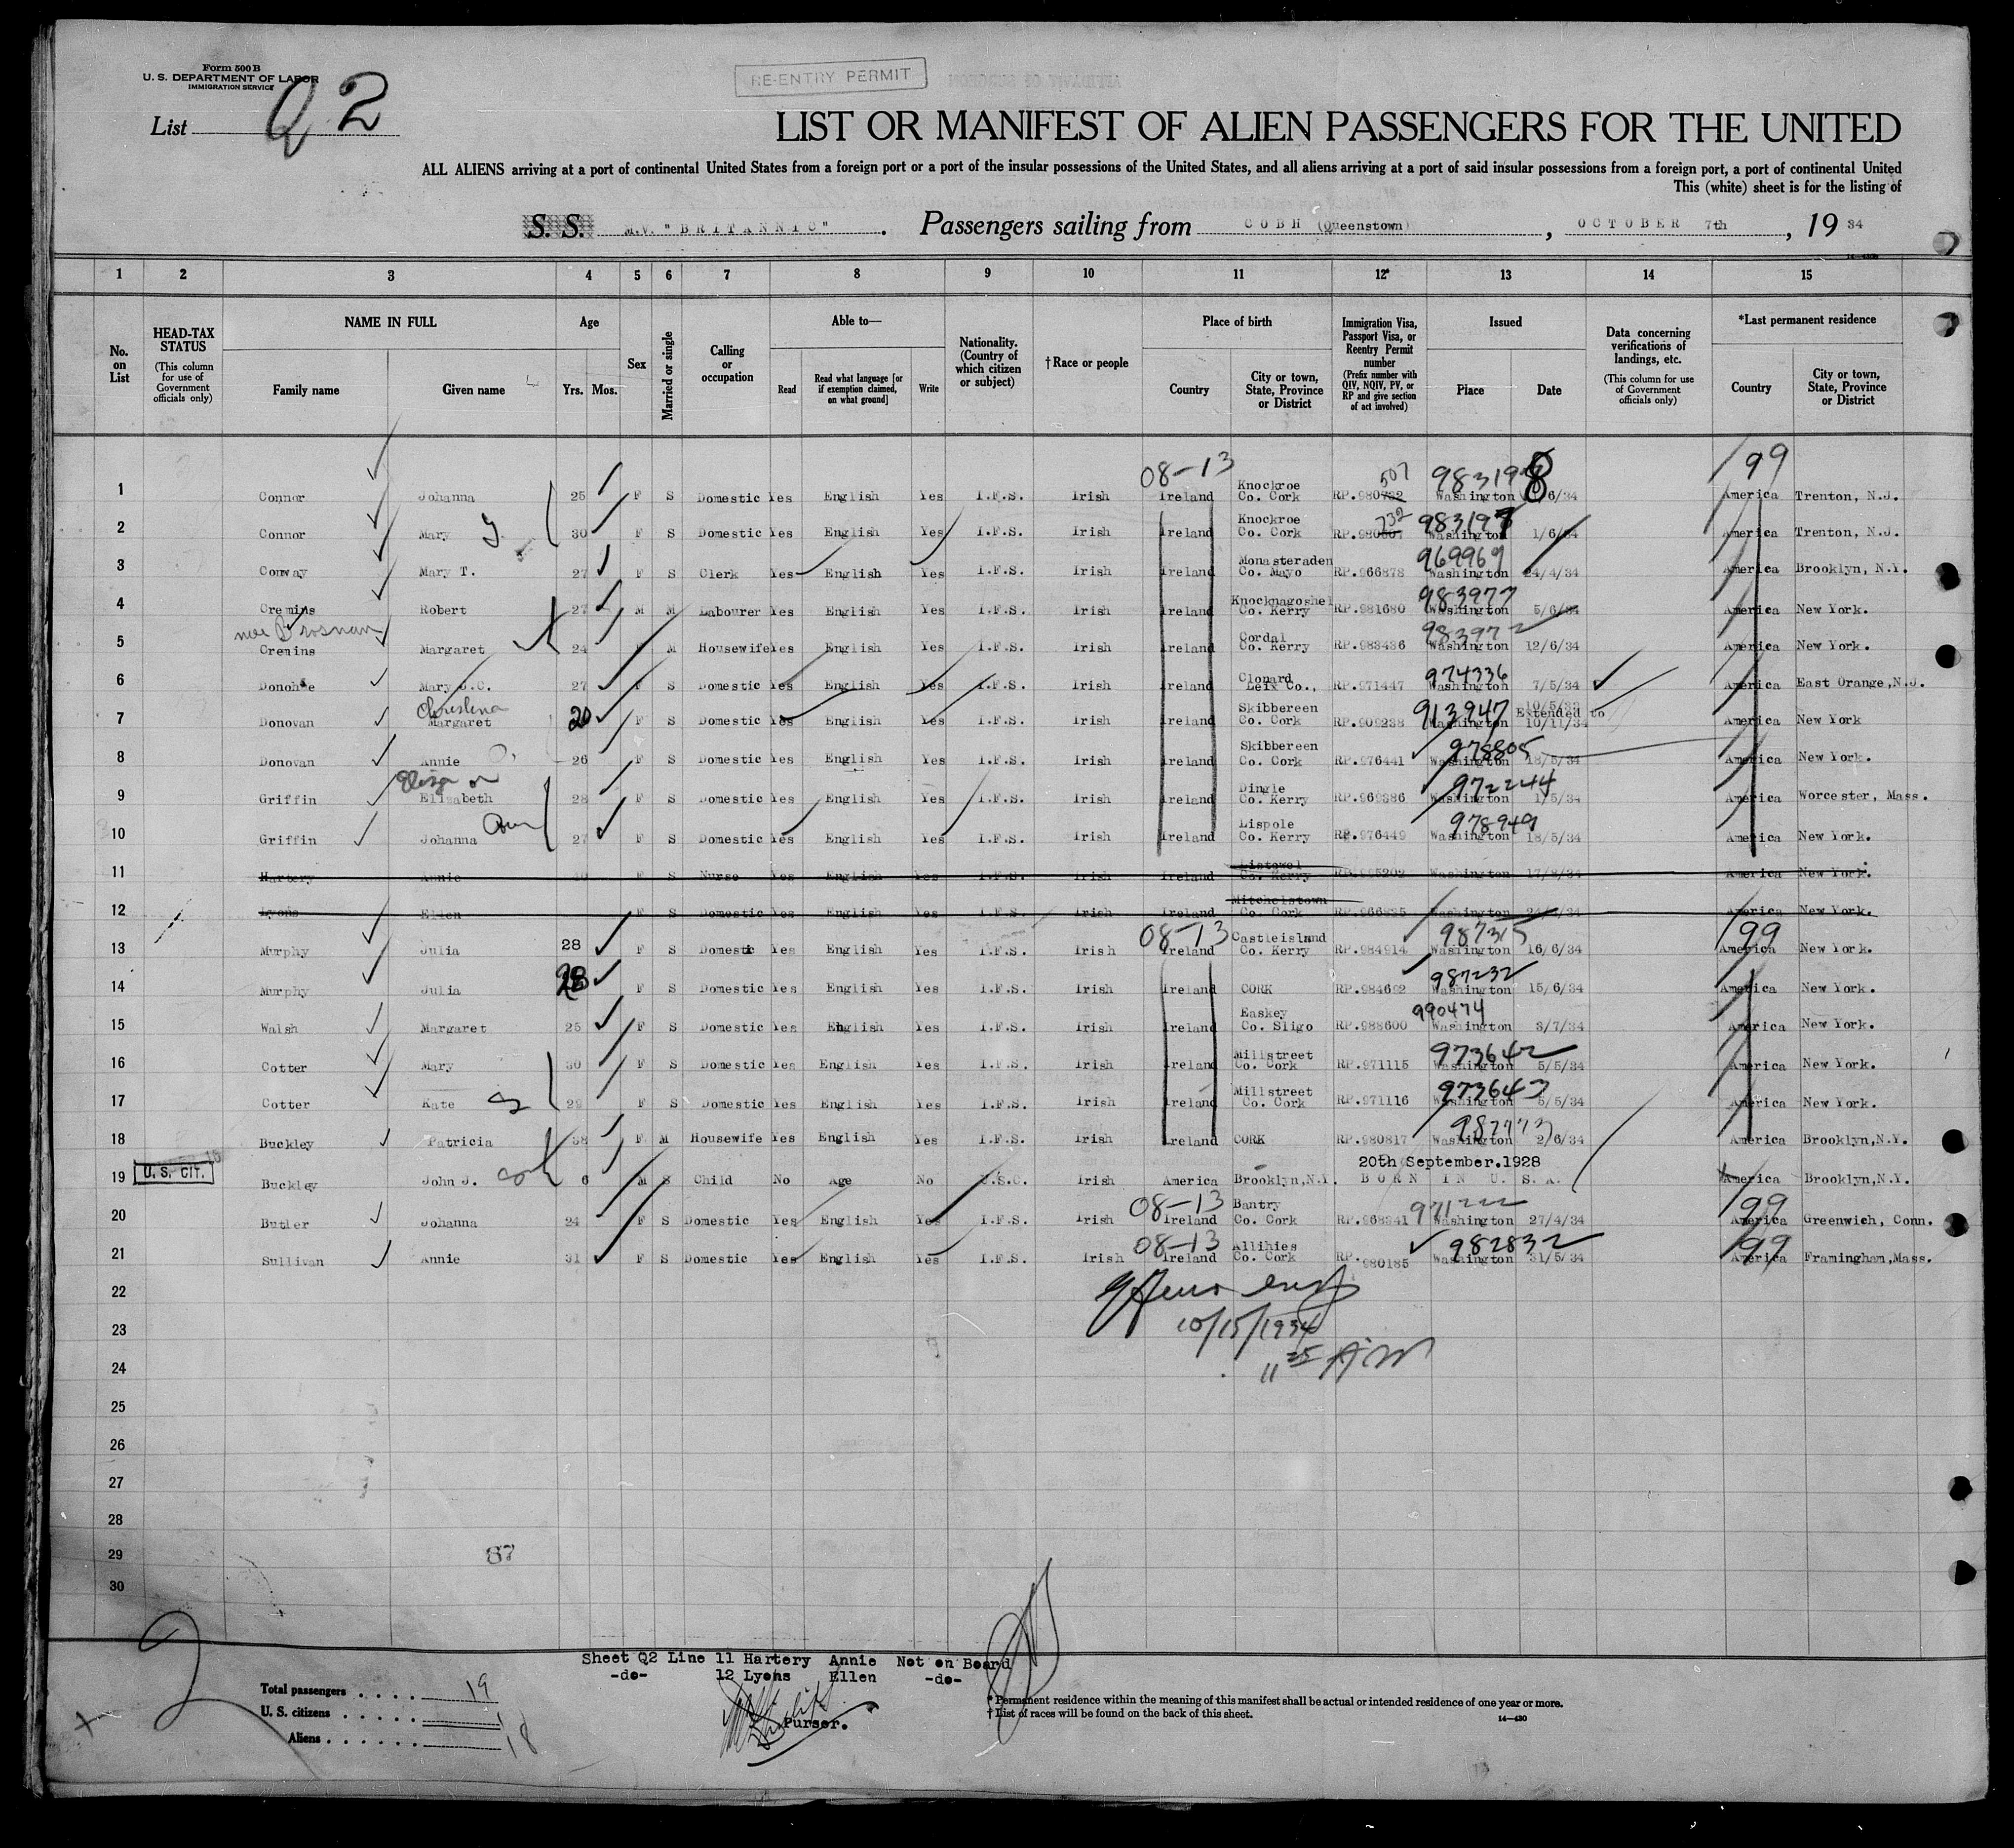 Form 500 B
U. S. DEPARTMENT OF LABOR
IMMIGRATION SERVICE
RE-ENTRY PERMIT
List Q2
LIST OR MANIFEST OF ALIEN PASSENGERS FOR THE UNITED
ALL ALIENS arriving at a port of continental United States from a foreign port or a port of the insular possessions of the United States, and all aliens arriving at a port of said insular possessions from a foreign port, a port of continental United
This (white) sheet is for the listing of
S. S. M.V. "BRITANNIC". Passengers sailing from COBH (Queenstown), OCTOBER 7th, 19 34
1 2 3 4 5 6 7 8 9 10 11 12* 13 14 15
No. on List
HEAD-TAX STATUS (This column for use of Government officials only)
NAME IN FULL Family name Given name
Age Yrs. Mos.
Sex
Married or single
Calling or occupation
Able to— Read Read what language [or if exemption claimed, on what ground] Write
Nationality. (Country of which citizen or subject)
†Race or people
Place of birth Country City or town, State, Province or District
Immigration Visa, Passport Visa, or Reentry Permit number (Prefix number with QIV, NQIV, PV, or RP and give section of act involved)
Issued Place Date
Data concerning verifications of landings, etc. (This column for use of Government officials only)
*Last permanent residence Country City or town, State, Province or District
08-13 507 983198 199
1 Connor Johanna 25 F S Domestic Yes English Yes I.F.S. Irish Ireland Knockroe Co. Cork RP.980732 Washington 1/6/34 America Trenton, N.J.
732 983197
2 Connor Mary 30 F S Domestic Yes English Yes I.F.S. Irish Ireland Knockroe Co. Cork RP.980507 Washington 1/6/34 America Trenton, N.J.
969969
3 Conway Mary T. 27 F S Clerk Yes English Yes I.F.S. Irish Ireland Monasteraden Co. Mayo RP.966878 Washington 24/4/34 America Brooklyn, N.Y.
983977
4 Cremins Robert 27 M M Labourer Yes English Yes I.F.S. Irish Ireland Knocknagoshel Co. Kerry RP.981680 Washington 5/6/34 America New York.
nee Brosnan 983972
5 Cremins Margaret 24 F M Housewife Yes English Yes I.F.S. Irish Ireland Cordal Co. Kerry RP.983436 Washington 12/6/34 America New York.
974336
6 Donohue Mary J.C. 27 F S Domestic Yes English Yes I.F.S. Irish Ireland Clonard Leix Co., RP.971447 Washington 7/5/34 America East Orange, N.J.
Christina 913947
7 Donovan Margaret 20 F S Domestic Yes English Yes I.F.S. Irish Ireland Skibbereen Co. Cork RP.909238 Washington 10/5/33 Extended to 10/11/34 America New York
978805
8 Donovan Annie 26 F S Domestic Yes English Yes I.F.S. Irish Ireland Skibbereen Co. Cork RP.976441 Washington 18/5/34 America New York.
Eliza or 972244
9 Griffin Elizabeth 28 F S Domestic Yes English Yes I.F.S. Irish Ireland Dingle Co. Kerry RP.969386 Washington 1/5/34 America Worcester, Mass.
978949
10 Griffin Johanna 27 F S Domestic Yes English Yes I.F.S. Irish Ireland Lispole Co. Kerry RP.976449 Washington 18/5/34 America New York.
11 Hartery Annie 40 F S Nurse Yes English Yes I.F.S. Irish Ireland Listowel Co. Kerry RP.995202 Washington 17/8/34 America New York.
12 Lyons Ellen F S Domestic Yes English Yes I.F.S. Irish Ireland Mitchelstown Co. Cork Washington America New York.
08-13 987315 199
13 Murphy Julia 28 F S Domestic Yes English Yes I.F.S. Irish Ireland Castleislnad Co. Kerry RP.984914 Washington 16/6/34 America New York.
987232
14 Murphy Julia 28 F S Domestic Yes English Yes I.F.S. Irish Ireland CORK RP.984692 Washington 15/6/34 America New York.
990474
15 Walsh Margaret 25 F S Domestic Yes English Yes I.F.S. Irish Ireland Easkey Co. Sligo RP.988600 Washington 3/7/34 America New York.
973642
16 Cotter Mary 30 F S Domestic Yes English Yes I.F.S. Irish Ireland Millstreet Co. Cork RP.971115 Washington 5/5/34 America New York.
973643
17 Cotter Kate 29 F S Domestic Yes English Yes I.F.S. Irish Ireland Millstreet Co. Cork RP.971116 Washington 5/5/34 America New York.
18 Buckley Patricia 38 F M Housewife Yes English Yes I.F.S. Irish Ireland CORK RP.980817 Washington 2/6/34 America Brooklyn, N.Y.
20th September.1928
19 U. S. CIT. Buckley John J. 6 M S Child No Age No U.S.C. Irish America Brooklyn, N.Y. BORN IN U. S. A. America Brooklyn, N.Y.
08-13 971222 199
20 Butler Johanna 24 F S Domestic Yes English Yes I.F.S. Irish Ireland Bantry Co. Cork RP.968341 Washington 27/4/34 America Greenwich, Conn.
08-13 982832 199
21 Sullivan Annie 31 F S Domestic Yes English Yes I.F.S. Irish Ireland Allihies Co. Cork RP. 980185 Washington 31/5/34 America Framingham, Mass.
22
23 10/15/1934
24 11 25 AM
25
26
27
28
29 87
30
Sheet Q2 Line 11 Hartery Annie Not on Board
-do- 12 Lyons Ellen -do-
Purser.
Total passengers . . . . 19
U. S. citizens . . . . . 1
Aliens . . . . . . 18
* Permanent residence within the meaning of this manifest shall be actual or intended residence of one year or more.
† List of races will be found on the back of this sheet.
14—430